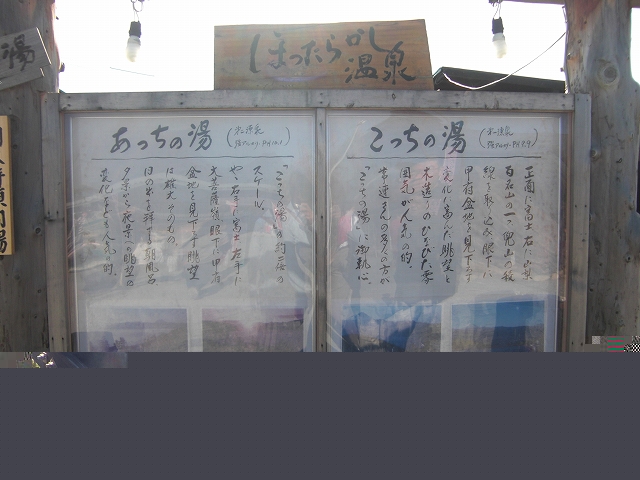 ほったらかし
温泉
湯
こっちの湯
正面に富士、右に山梨
百名山の一つ、兜山の稜
線を取り込み、眼下に
甲府盆地を見下ろす
変化に富んだ眺望と
木造りのひなびた雰
囲気が人気の的。
常連さんの多くの方が
「こっちの湯」に御執心。
あっちの湯
「こっちの湯」の約二倍の
スケール。
やや右手に富士、左手に
大菩薩嶺、眼下に甲府
盆地を見下す眺望
は雄大そのもの
日の出を拝む朝風呂
夕景から夜景への眺望の
変化などが人気の的。